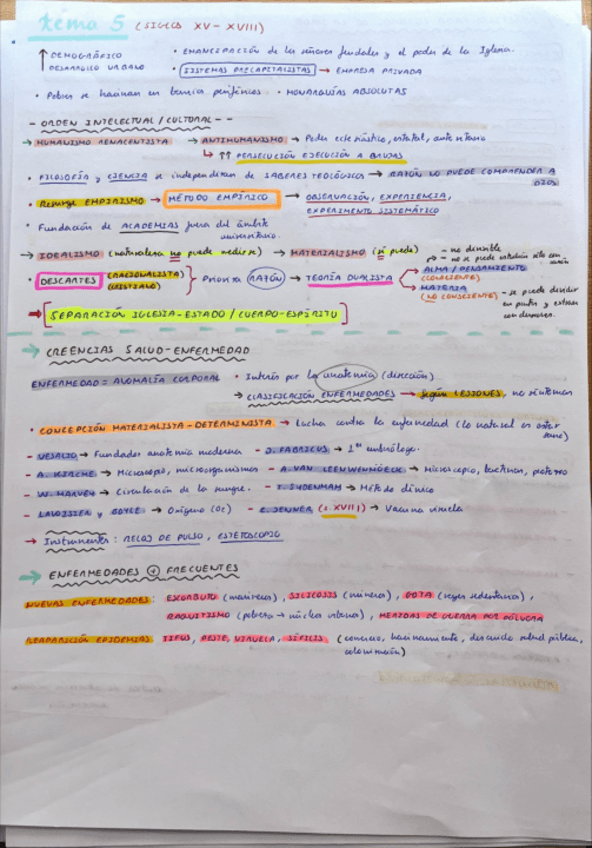 tema 5 (SIGLOS XV - XVIII)
↑ DEMOGRÁFICO
DESARROLLO URBANO
· EMANCIPACIÓN de los señores feudales y el poder de la Iglesia.
· SISTEMAS PRECAPITALISTAS → EMPRESA PRIVADA
· Pobres se hacinan en barrios periféricos · MONARQUÍAS ABSOLUTAS
- ORDEN INTELECTUAL / CULTURAL - -
→ HUMANISMO RENACENTISTA → ANTIHUMANISMO → Poder eclesiástico, estatal, autoritario
↳ ↑↑ PERSECUCIÓN EJECUCIÓN A BRUJAS
· FILOSOFÍA y CIENCIA se independizan de SABERES TEOLÓGICOS → RAZÓN NO PUEDE COMPRENDER A DIOS
· Resurge EMPIRISMO → MÉTODO EMPÍRICO → OBSERVACIÓN, EXPERIENCIA,
EXPERIMENTO SISTEMÁTICO
· Fundación de ACADEMIAS fuera del ámbito
universitario.
→ IDEALISMO (naturaleza no puede medirse) → MATERIALISMO (sí puede)
· DESCARTES (RACIONALISTA) (CRISTIANO) } Prioriza RAZÓN → TEORÍA DUALISTA
- no divisible
- no se puede estudiar sólo con razón
ALMA / PENSAMIENTO
(CONSCIENTE)
MATERIA
(NO CONSCIENTE) - se puede dividir
en partes y extraer
conclusiones.
→ SEPARACIÓN IGLESIA-ESTADO / CUERPO-ESPÍRITU
→ CREENCIAS SALUD-ENFERMEDAD
ENFERMEDAD = ANOMALÍA CORPORAL · Interés por la anatomía (disección)
→ CLASIFICACIÓN ENFERMEDADES → según LESIONES, no síntomas
· CONCEPCIÓN MATERIALISTA-DETERMINISTA → Lucha contra la enfermedad (lo natural es estar
sano)
- VESALIO → Fundador anatomía moderna - J. FABRICUS → 1er embriólogo.
- A. KIRCHE → Microscopio, microorganismos - A. VAN LEENWENHOECK → Microscopio, bacterias, protozoo
- W. HARVEY → Circulación de la sangre. - T. SYDENHAM → Método clínico
- LAVOISIER y BOYLE → Oxígeno (O2) - E. JENNER (s. XVIII) → Vacuna viruela
→ Instrumentos : RELOJ DE PULSO, ESTETOSCOPIO
→ ENFERMEDADES + FRECUENTES
NUEVAS ENFERMEDADES: ESCORBUTO (marineros), SILICOSIS (mineros), GOTA (reyes sedentarios),
RAQUITISMO (pobreza → núcleos urbanos), HERIDAS DE GUERRA POR PÓLVORA
REAPARICIÓN EPIDEMIAS TIFUS, PESTE, VIRUELA, SÍFILIS (comercio, hacinamiento, descuido salud pública,
colonización)